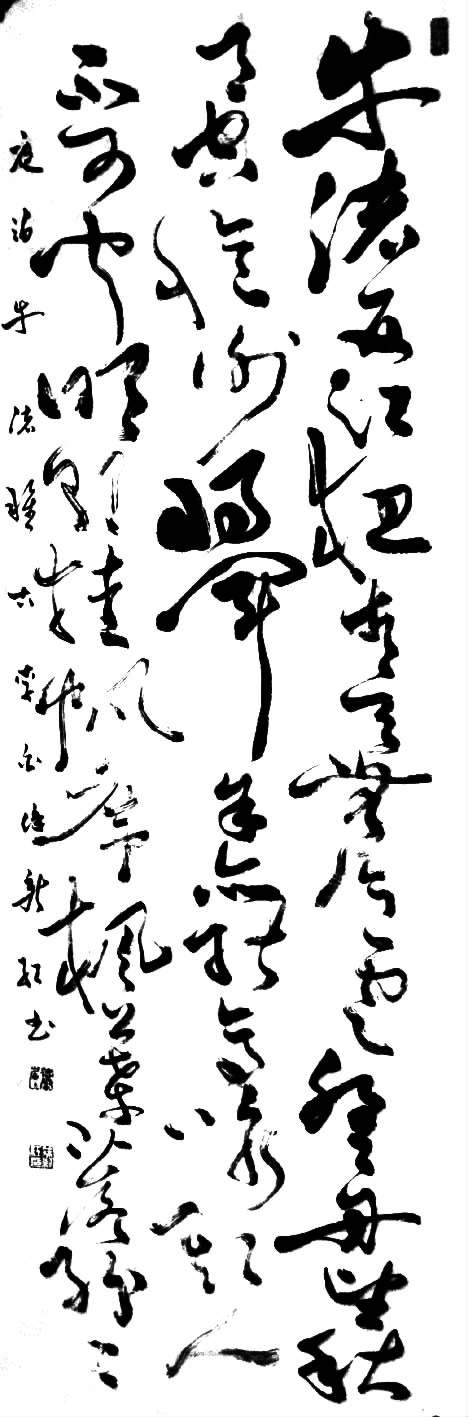 牛渚西江夜青天無片雲登舟望秋
月空憶謝將軍余亦能高詠斯人
不可聞明朝挂帆席楓葉落紛〻
夜泊牛渚懷古李白詩書